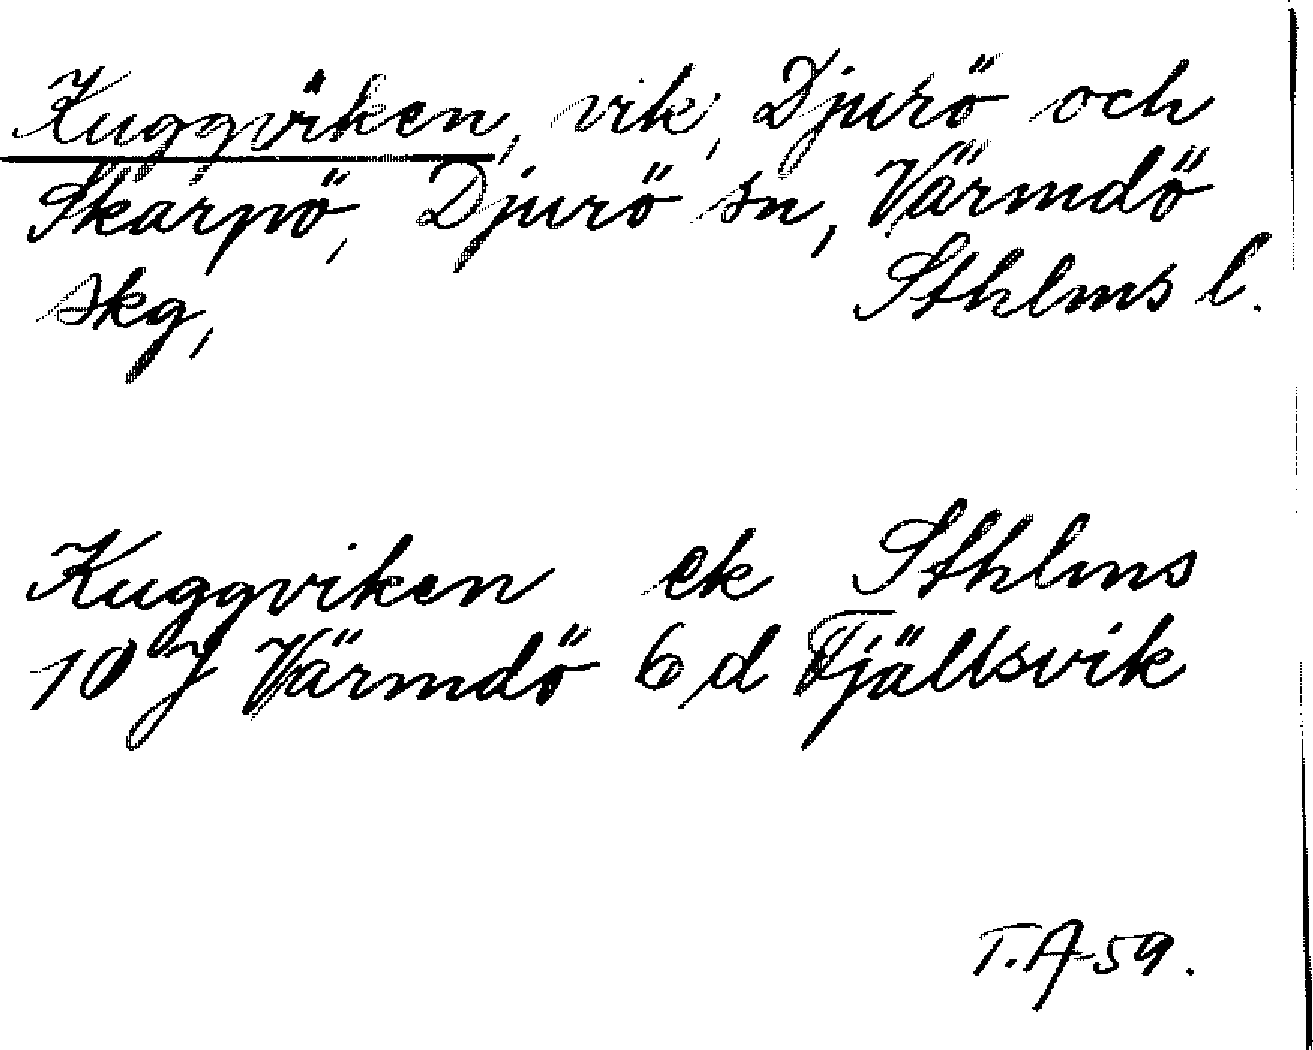 Kuggviken, vik, Djurö och
Skarpö, Djurö sn, Värmdö
skg, Sthlms l.
Kuggviken ek Sthlms
10 J Värmdö 6 d Fjällsvik
T.A 59.